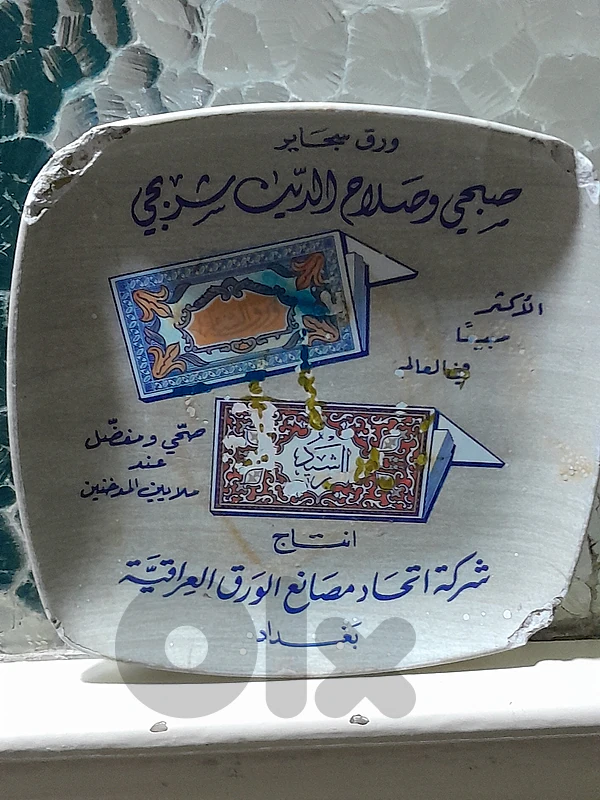 ورق سجاير
صبحي وصلاح الدين شربجي
الأكثر
مبيعًا
في العالم
الرشيد
صحّي ومفضّل
عند
ملايين المدخنين
انتاج
شركة اتحاد مصانع الورق العراقيّة
بغداد
OLX